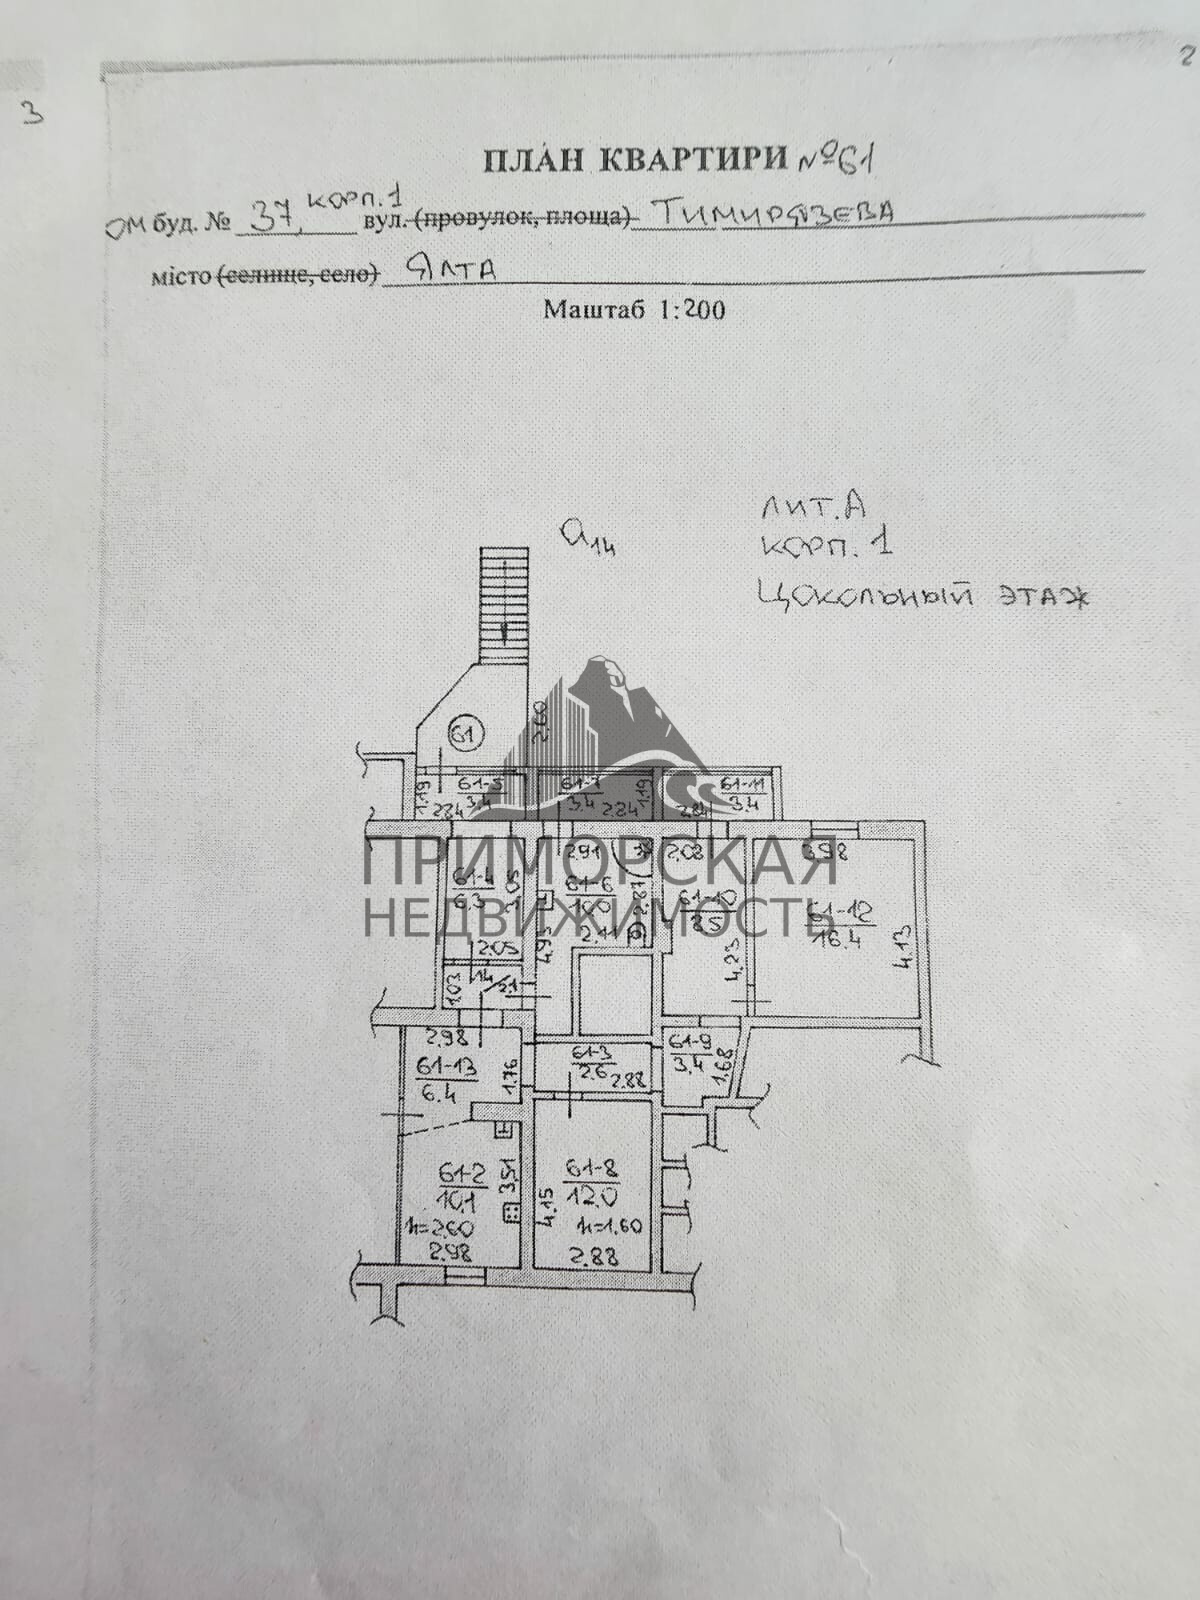 2
3
ПЛАН КВАРТИРИ №61
ом буд. № 37, корп.1 вул. (провулок, площа) Тимирязева
місто (селище, село) Ялта
Маштаб 1:200
а14
лит.А
корп. 1
цокольный этаж
61
2.60
1.19
61-5
3.4
2.84
61-7
3.4
2.84
1.19
61-11
3.4
2.84
ПРИМОРСКАЯ
НЕДВИЖИМОСТЬ
61-4
6.3
3.05
2.05
2.91
61-6
10.0
2.87
2.11
4.93
2.08
61-10
8.5
4.23
3.98
61-12
16.4
4.13
1.03
14
2.1
2.98
61-13
6.4
1.76
61-3
2.6
2.88
61-9
3.4
1.68
61-2
10.1
3.51
h=2.60
2.98
61-8
12.0
4.15
h=1.60
2.88